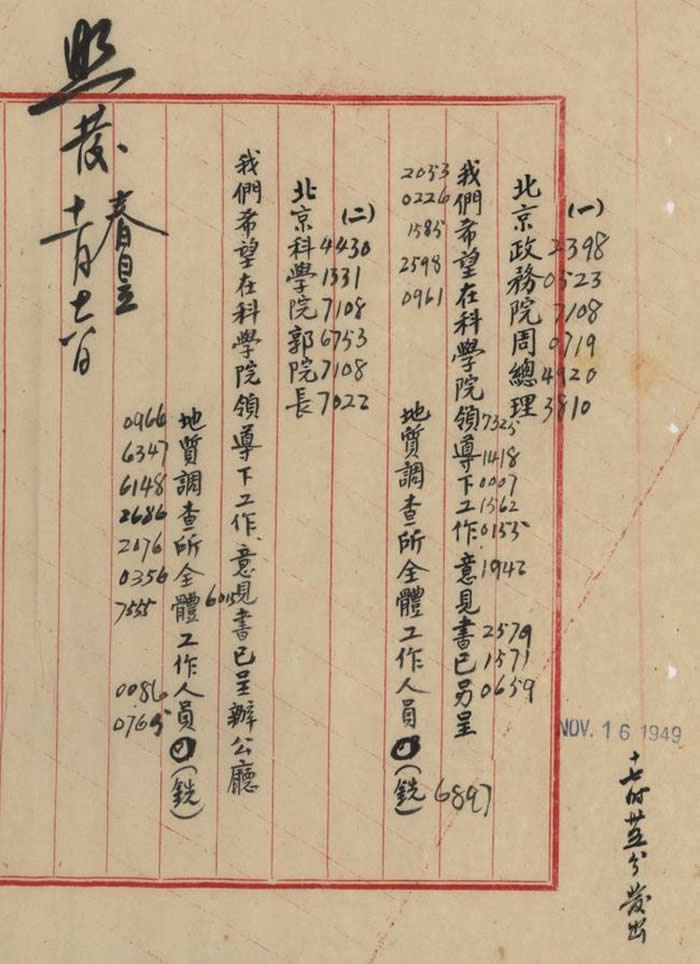 NOV. 16 1949
(一)
2398 0523 7108 0719 4920 3810
北京政務院周總理
7325 1418 0007 1562 0155 1942 2579 1571 0659
我們希望在科學院領導下工作．意見書已另呈
2053 0226 1585 2598 0961
6897
地質調查所全體工作人員(銑)
(二)
4430 1331 7108 6753 7108 7022
北京科學院郭院長
我們希望在科學院領導下工作、意見書已呈辦公廳
6015
地質調查所全體工作人員(銑)
0966 6347 6148 2686 2076 0356 7555 0086 0765
照發
春昱
十一月十六日